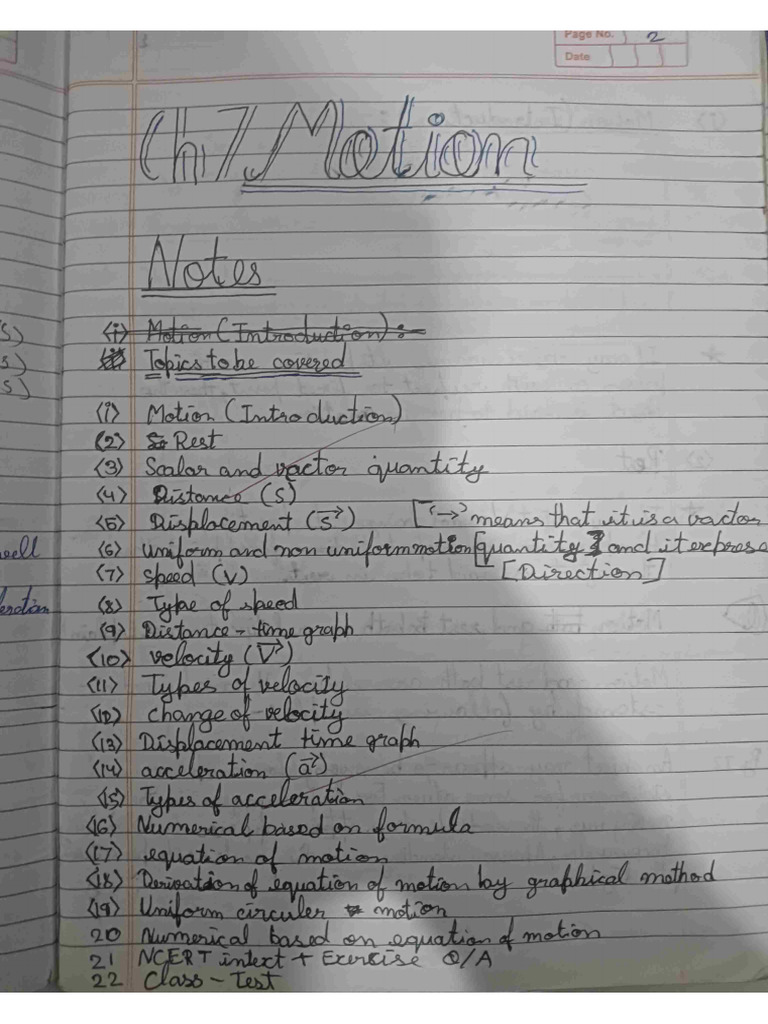 Page No. 2
Date
Ch. 7. Motion
Notes
(i) Motion (Introduction) :-
Topics to be covered
(1) Motion (Introduction)
(2) Rest
(3) Scalar and vactor quantity
(4) Distance (S)
(5) Displacement (S→) [(→) means that it is a vactor
(6) uniform and non uniform motion [quantity] and it exprese
(7) speed (v) [Direction]
(8) Type of speed
(9) Distance - time graph
(10) velocity (V→)
(11) Types of velocity
(12) change of velocity
(13) Displacement time graph
(14) acceleration (a→)
(15) Types of acceleration
(16) Numerical based on formula
(17) equation of motion
(18) Derivation of equation of motion by graphical method
(19) Uniform circuler motion
20 Numerical based on equation of motion
21 NCERT intext + Exercise Q/A
22 Class - Test